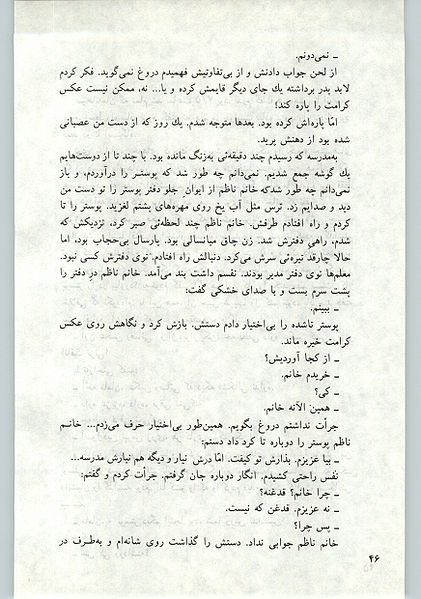 ـ نمی‌دونم.
از لحن جواب دادنش و از بی‌تفاوتیش فهمیدم دروغ نمی‌گوید. فکر کردم
لابد پدر برداشته یك جای دیگر قایمش کرده و یا... نه، ممکن نیست عکس
کرامت را پاره کند!
امّا پاره‌اش کرده بود. بعدها متوجه شدم. یك روز که از دست من عصبانی
شده بود از دهنش پرید.
به‌مدرسه که رسیدم چند دقیقه‌ئی به‌زنگ مانده بود. با چند تا از دوست‌هایم
یك گوشه جمع شدیم. نمی‌دانم چه طور شد که پوستر را درآوردم، و باز
نمی‌دانم چه طور شدکه خانم ناظم از ایوان جلو دفتر پوستر را تو دست من
دید و صدایم زد. ترس مثل آب یخ روی مهره‌های پشتم لغزید. پوستر را تا
کردم و راه افتادم طرفش. خانم ناظم چند لحظه‌ئی صبر کرد، نزدیکش که
شدم، راهیِ دفترش شد. زن چاق میانسالی بود. پارسال بی‌حجاب بود، اما
حالا چارقدِ تیره‌ئی سرش می‌کرد. دنبالش راه افتادم. توی دفترش کسی نبود.
معلم‌ها توی دفتر مدیر بودند. نفسم داشت بند می‌آمد. خانم ناظم درِ دفتر را
پشت سرم بست و با صدای خشکی گفت:
ـ ببینم.
پوستر تاشده را بی‌اختیار دادم دستش. بازش کرد و نگاهش روی عکس
کرامت خیره ماند.
ـ از کجا آوردیش؟
ـ خریدم خانم.
ـ کی؟
ـ همین الآنه خانم.
جرأت نداشتم دروغ بگویم. همین‌طور بی‌اختیار حرف می‌زدم... خانـم
ناظم پوستر را دوباره تا کرد داد دستم:
ـ بیا عزیزم. بذارش تو کیفت. امّا درش نیار و دیگه هم نیارش مدرسه...
نفس راحتی کشیدم. انگار دوباره جان گرفتم. جرأت کردم و گفتم:
ـ چرا خانم؟ قدغنه؟
ـ نه عزیزم. قدغن که نیست.
ـ پس چرا؟
خانم ناظم جوابی نداد. دستش را گذاشت روی شانه‌ام و به‌طـرف در
۴۶